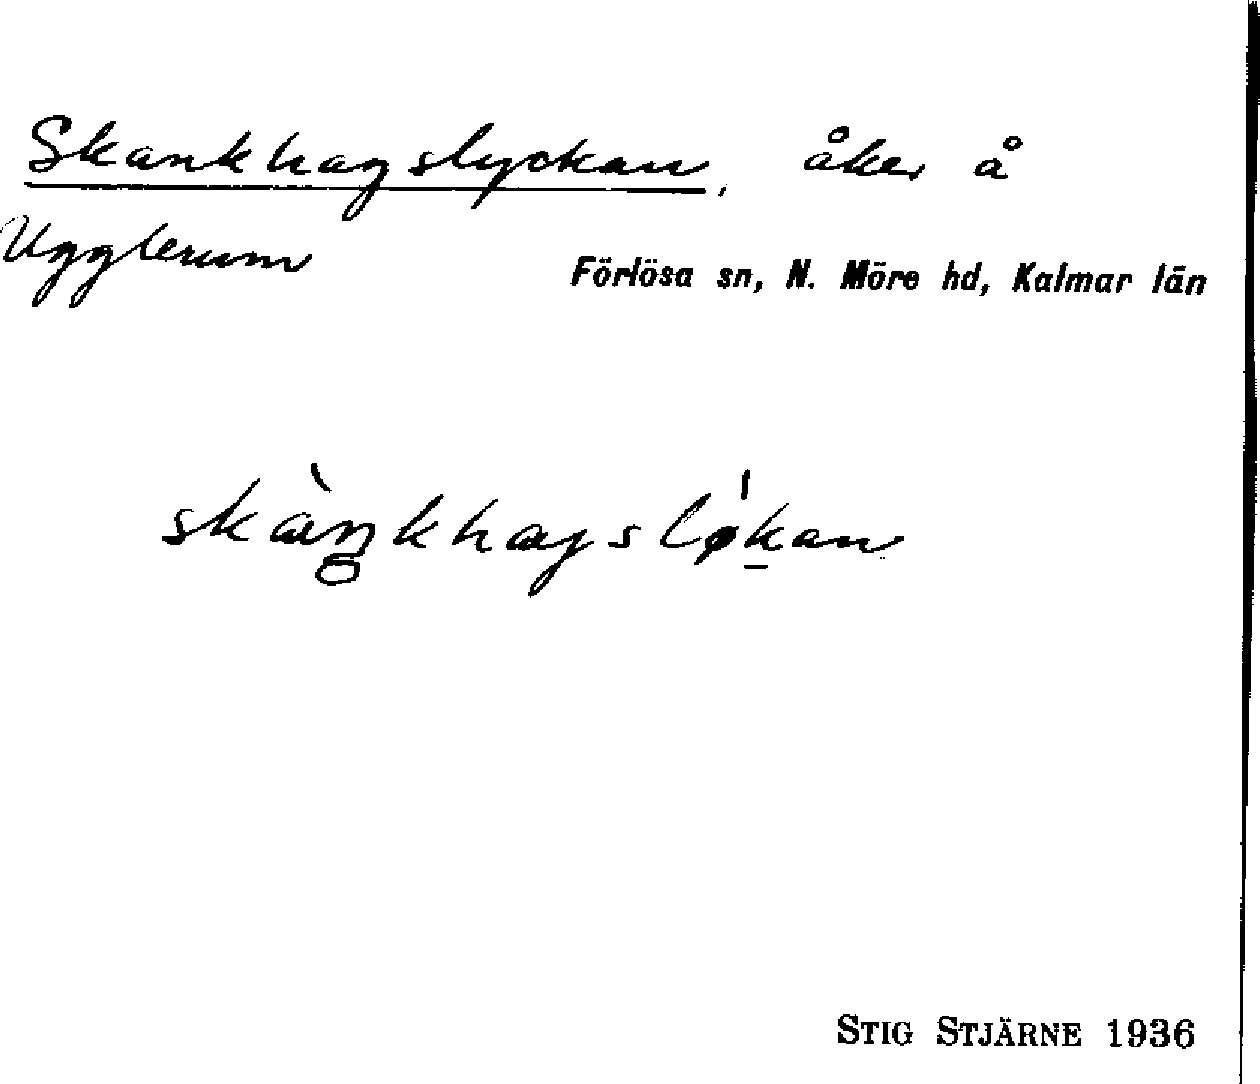 Skankhagslyckan, åker å
Ugglerum
Förlösa sn, N. Möre hd, Kalmar län
skàŋkhagsløkan
STIG STJÄRNE 1936